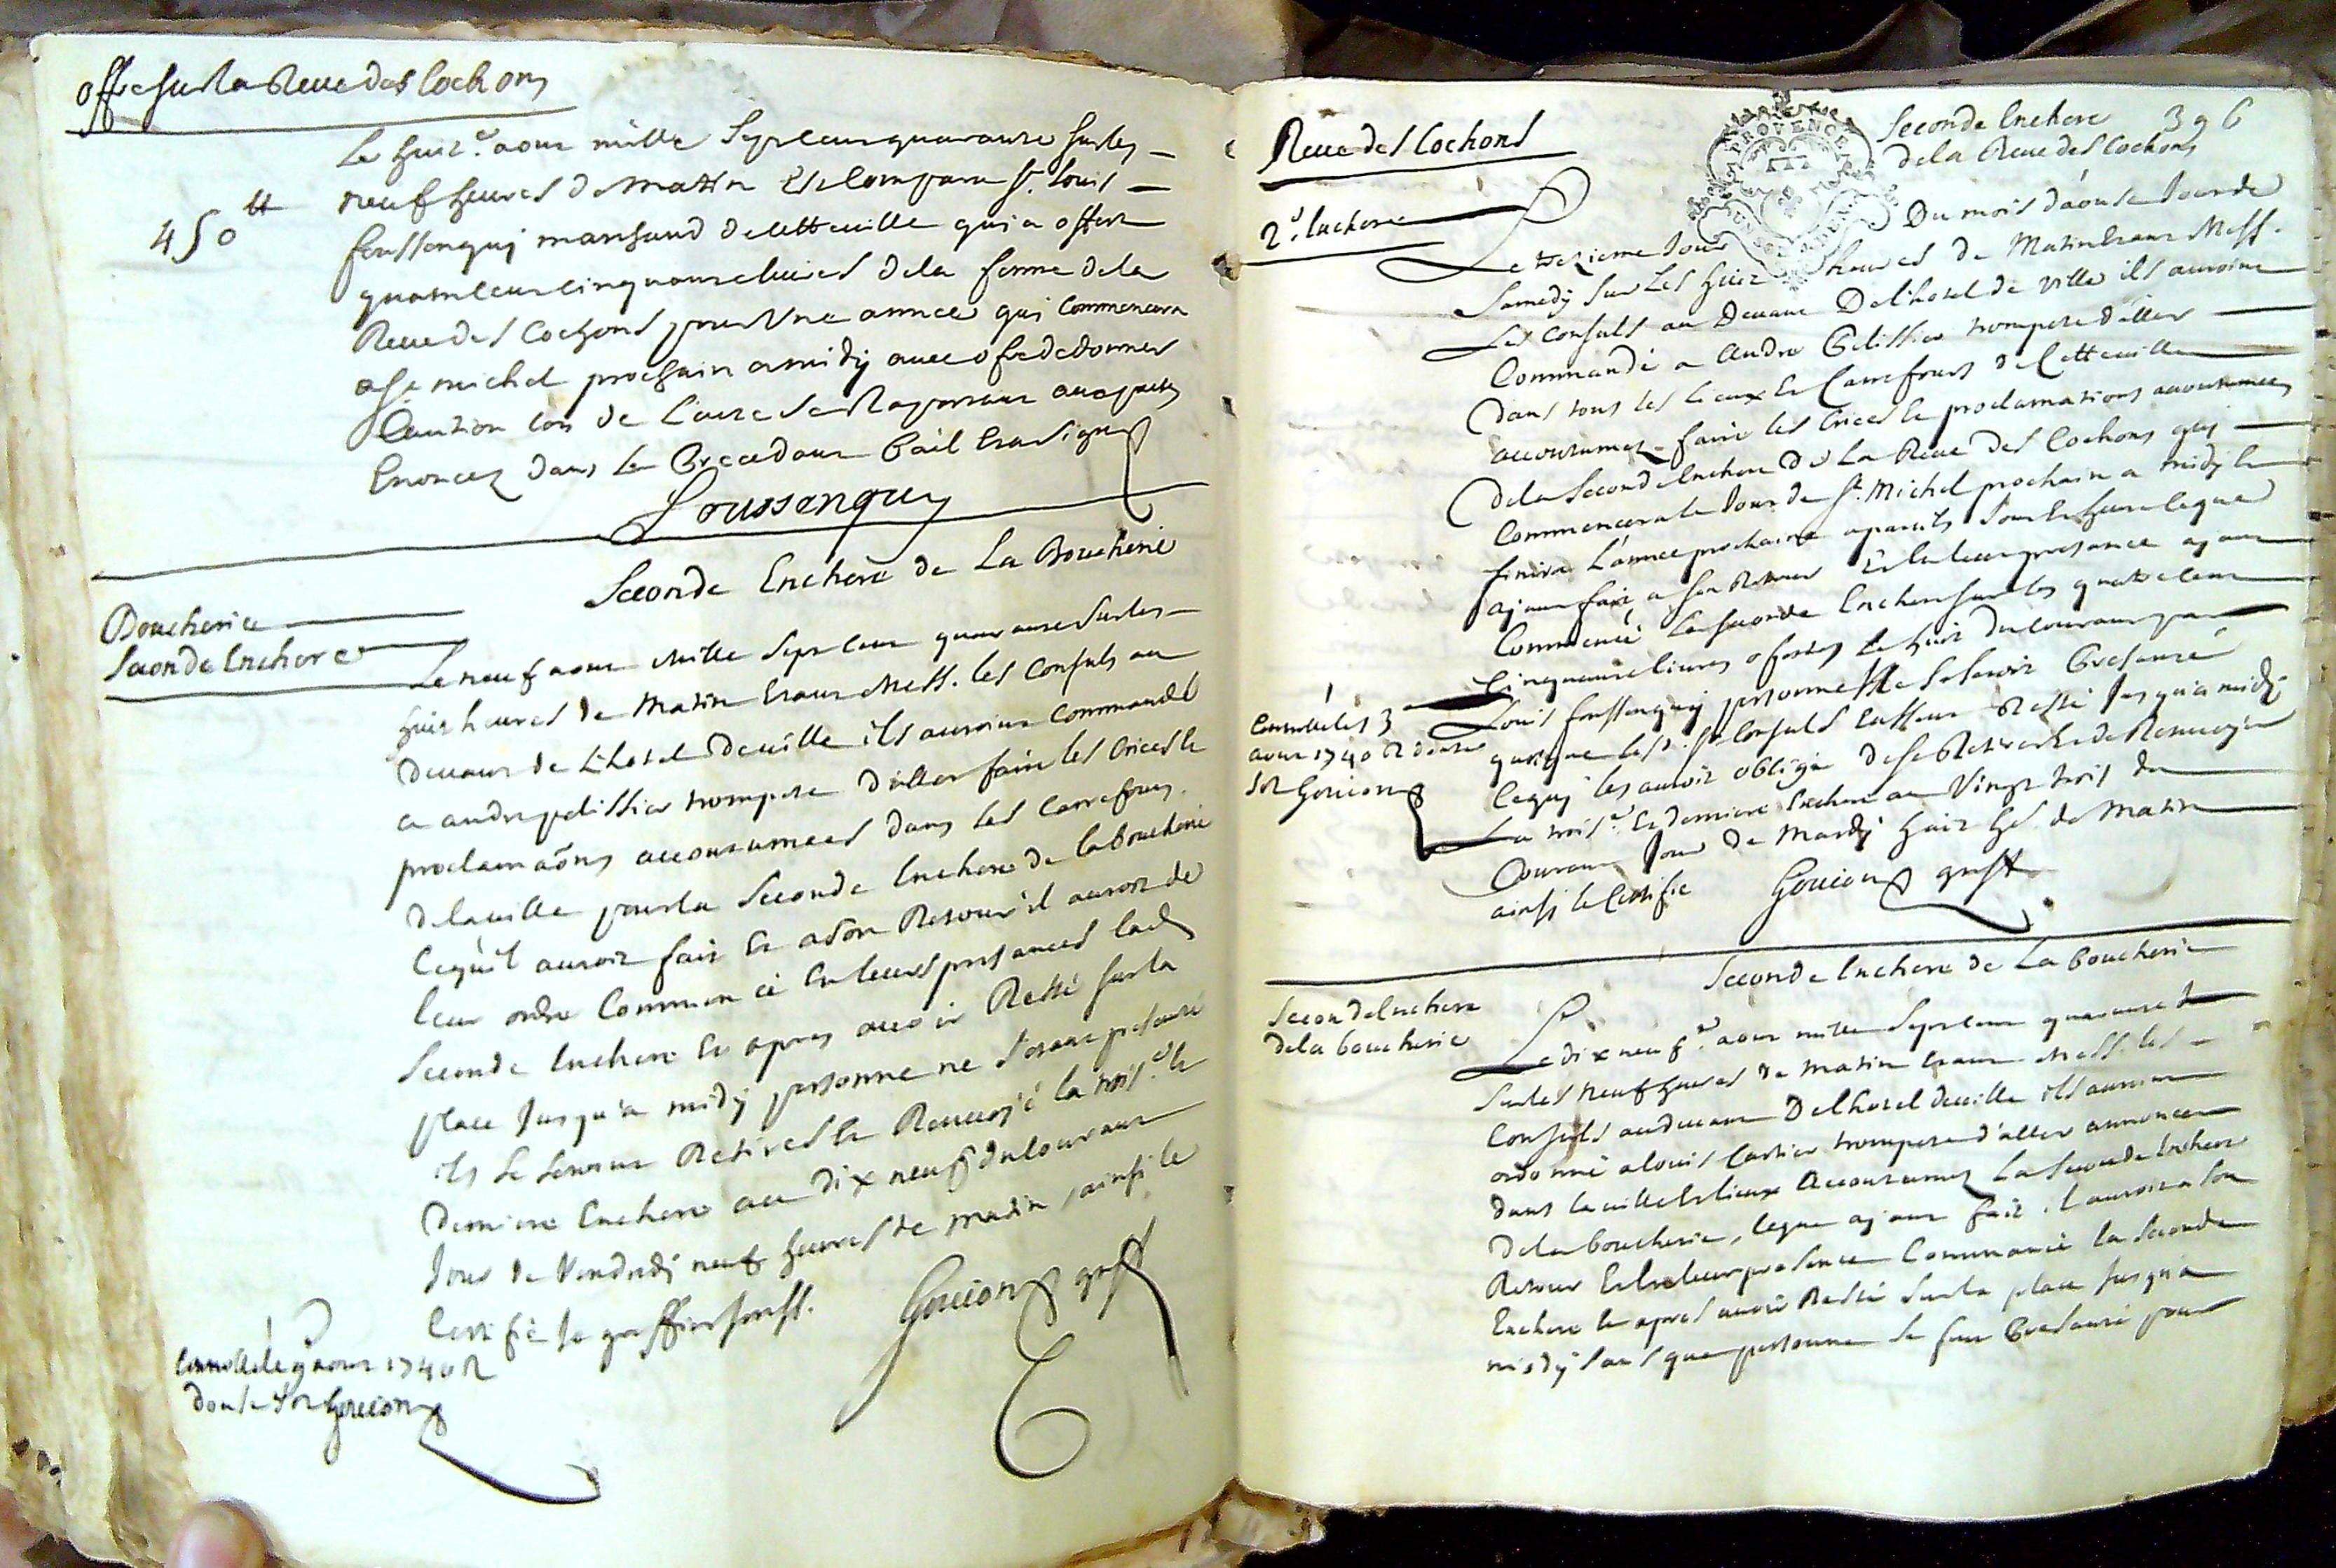 offre sur la Reve des Cochons
Le huit.e aout mille Sept cens quarante sur les
neuf heures de matin Est Comparu Sr. Louis
foussenquy marchand de cette ville qui a offert
450 tt
quatre cens cinquante livres de la ferme de la
Reve des Cochons pour Une année qui Commencera
a St. michel prochain a midy avec ofre de donner
Caution lors de l'acte se Raportant aux pactes
Enoncez dans le Precedant Bail Et a Signé
Foussenquy
Seconde Enchere de La Boucherie
Boucherie
Seconde Enchere
Le neuf aout Mille Sept cens quarante Sur les
huit heures de Matin Etant Mess. les Consuls au
devant de L'hotel de ville ils auroint Commandé
a andre pelissier trompete d'aller faire les Criees Et
proclamaõns accoutumees dans les Carrefours
de la ville pour la Seconde Enchere de la boucherie
Ce qu'il auroit fait Et a Son Retour il auroit de
leur ordre Commencé En leurs presances lad
Seconde Enchere Et apres avoir Resté Sur la
place Jusqu'a midy personne ne S'etant presanté
ils Se Seroint Retires Et Renvoyé la trois.e Et
Derniere Enchere au dix neuf du Courant
Jour de Vendredy neuf heures de matin, ainsi le
Certifie Je greffier Souss.
Goucon greff
Controllé le 9 aout 1740 R
douse Sols Goucon
Seconde Enchere 396
de la Reve des Cochons
Reve des Cochons
PROVENCE
2.e Enchere
Le treizieme Jour Du mois d'aout Jour de
Samedy Sur Les huit heures de Matin Etant Mess.
Les Consuls au Devant De l'hotel de ville ils auroint
Commandé a André Pelissier trompete d'aller
Dans tous les lieux Et Carrefours de Cette ville
accoutumez faire les Criees Et proclamations accoutumees
De la Seconde Enchere De La Reve des Cochons qui
Commencera le Jour de St. Michel prochain a midy Et
finira L'année prochaine a pareils Jour Et heure ce que
ayant fait a Son Retour Et En leur presance ayant
Commencé La Seconde Enchere Sur les quatre cens
Cinquante livres ofertes le huit du Courant par
Louis foussenquy personne Ne Se Seroit Presanté
quoique les Srs. Consuls Eussent Resté Jusqu'a midy
Ce qui les auroit obligé de Se Retirer Et de Renvoyer
La trois.e Et Derniere Enchere au Vingt trois du
Courant Jour De Mardy huit hes. de Matin
ainsi le Certifie Goucon greff
Controllé le 13
aout 1740 R douse
Sols Goucon
Seconde Enchere de La boucherie
Seconde Enchere
de la boucherie
Le dix neuf.e aout mille Sept cens quarante
Sur les neuf heures de matin Etant Mess. les
Consuls au devant De l'hotel de ville ils auroint
ordonné a louis Cartier trompete d'aller annoncer
dans la ville Et lieux Accoutumez La Seconde Enchere
De la boucherie, Ce que ayant fait il auroit a Son
Retour Et En leur presence Commancé la Seconde
Enchere Et apres avoir Resté Sur la place Jusqu'a
midy Sans que personne Se fut Presanté pour